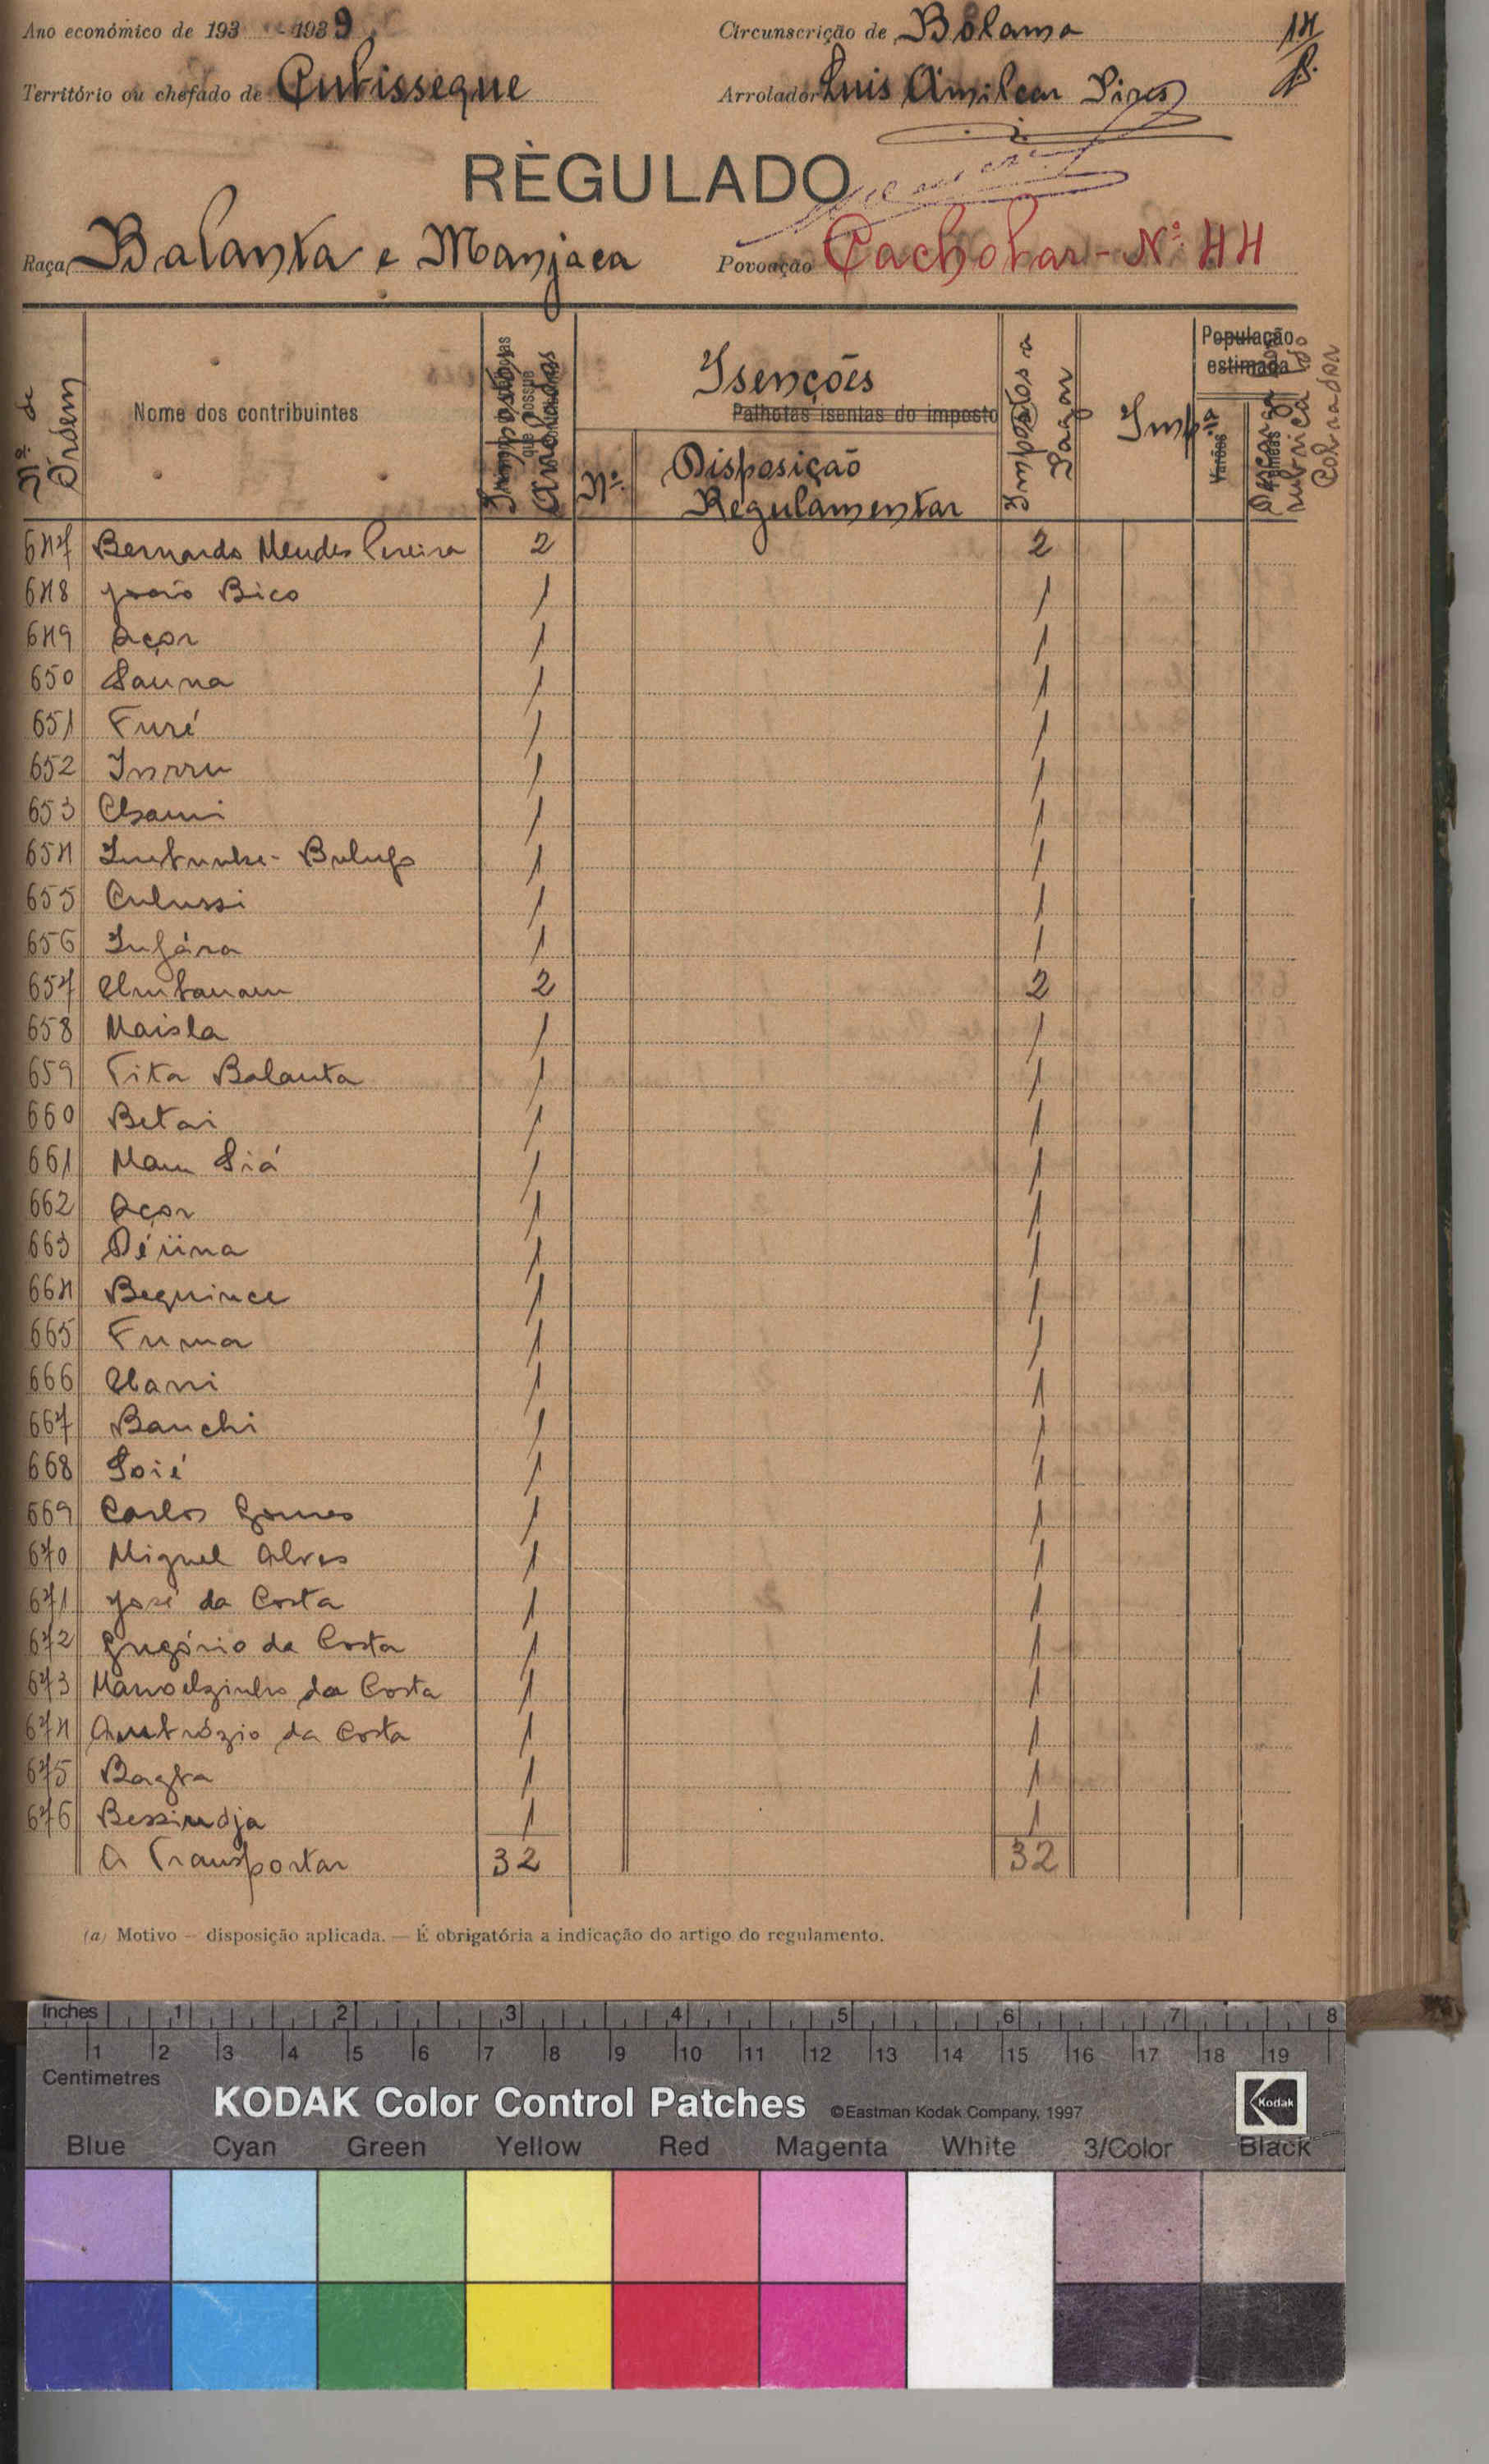 Ano económico de 193 -1939
Circunscrição de Bolama
14
Território ou chefado de Cubisseque
Arrolador Luis Amilcar Pires
RÈGULADO
Raça Balanta e Manjaca
Povoação Cachobar - Nº 44
Nº de Ordem
Nome dos contribuintes
Impostos Arrolados
Isenções
Palhotas isentas do imposto
Nº
Disposição Regulamentar
Impostos a Pagar
Impº
População estimada
Varões
rubrica do Cobrador
647 Bernardo Mendes Pereira 2 2
648 João Bico 1 1
649 Açor 1 1
650 Sauna 1 1
651 Furé 1 1
652 1 1
653 1 1
654 1 1
655 Culussi 1 1
656 Infára 1 1
657 2 2
658 Maisla 1 1
659 Tita Balanta 1 1
660 Betai 1 1
661 Mam Siá 1 1
662 Açor 1 1
663 1 1
664 Bequince 1 1
665 Fuma 1 1
666 1 1
667 Banchi 1 1
668 Soié 1 1
669 Carlos Gomes 1 1
670 Miguel Alves 1 1
671 José da Costa 1 1
672 Gregório da Costa 1 1
673 Manoelzinho da Costa 1 1
674 Ambrózio da Costa 1 1
675 Bagba 1 1
676 Bessindja 1 1
A Transportar 32 32
(a) Motivo — disposição aplicada. — É obrigatória a indicação do artigo do regulamento.
Inches 1 2 3 4 5 6 7 8
1 2 3 4 5 6 7 8 9 10 11 12 13 14 15 16 17 18 19
Centimetres
KODAK Color Control Patches ©Eastman Kodak Company, 1997 Kodak
Blue Cyan Green Yellow Red Magenta White 3/Color Black